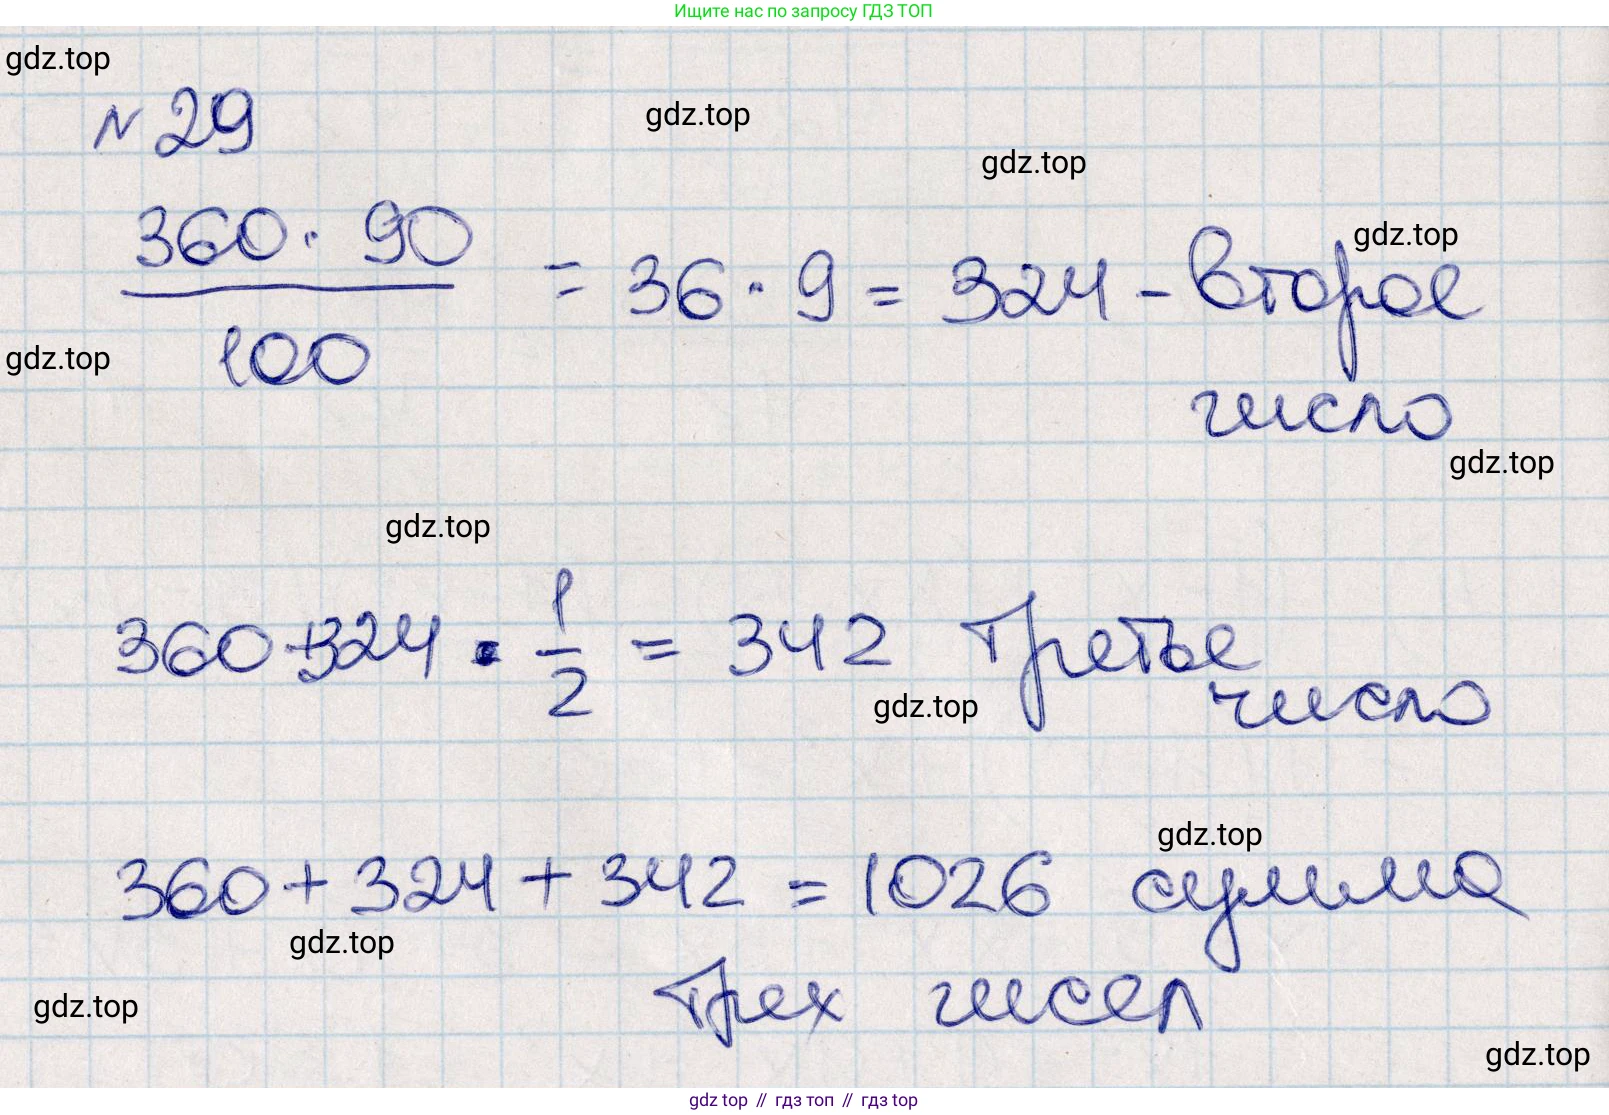 Ищите нас по запросу ГДЗ ТОП
gdz.top
№ 29
gdz.top
gdz.top
360 · 90
gdz.top
= 36 · 9 = 324 - второе
100
gdz.top
число
gdz.top
gdz.top
360+324 · 1/2 = 342 третье
gdz.top
число
gdz.top
360 + 324 + 342 = 1026 сумма
gdz.top
трех чисел
gdz.top
gdz.top
gdz top // гдз топ // гдз top